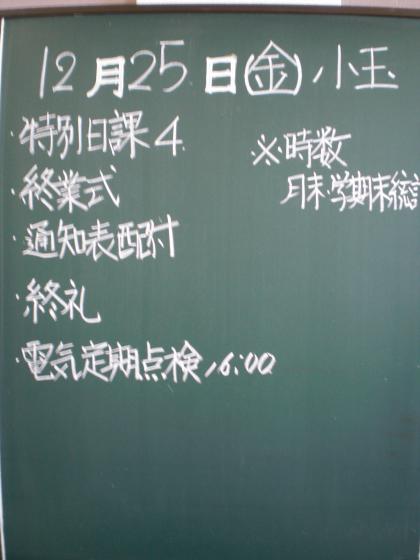 12月25日(金) 小玉
・特別日課4
・終業式
・通知表配付
・終礼
・電気定期点検 16:00
※時数
月末・学期末統計